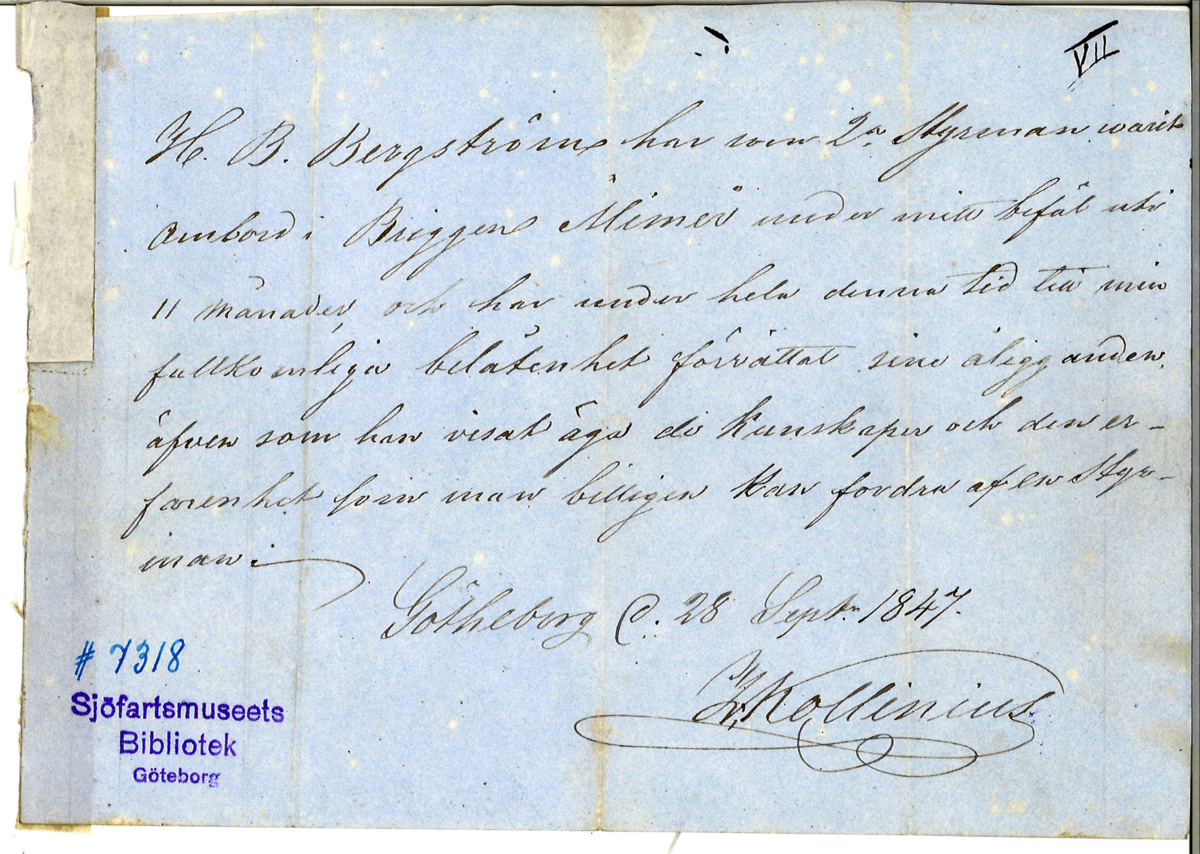 VII
H. B. Bergström har som 2a Styrman warit
ombord i Briggen Mimer under mitt befäl uti
11 månader, och har under hela denna tid till min
fullkomliga belåtenhet förrättat sine åligganden,
äfven som han visat äga de kunskaper och den er-
farenhet som man billigen kan fordra af en Styr-
man.
Götheborg d. 28 Septr. 1847.
Kollinius
# 7318
Sjöfartsmuseets
Bibliotek
Göteborg